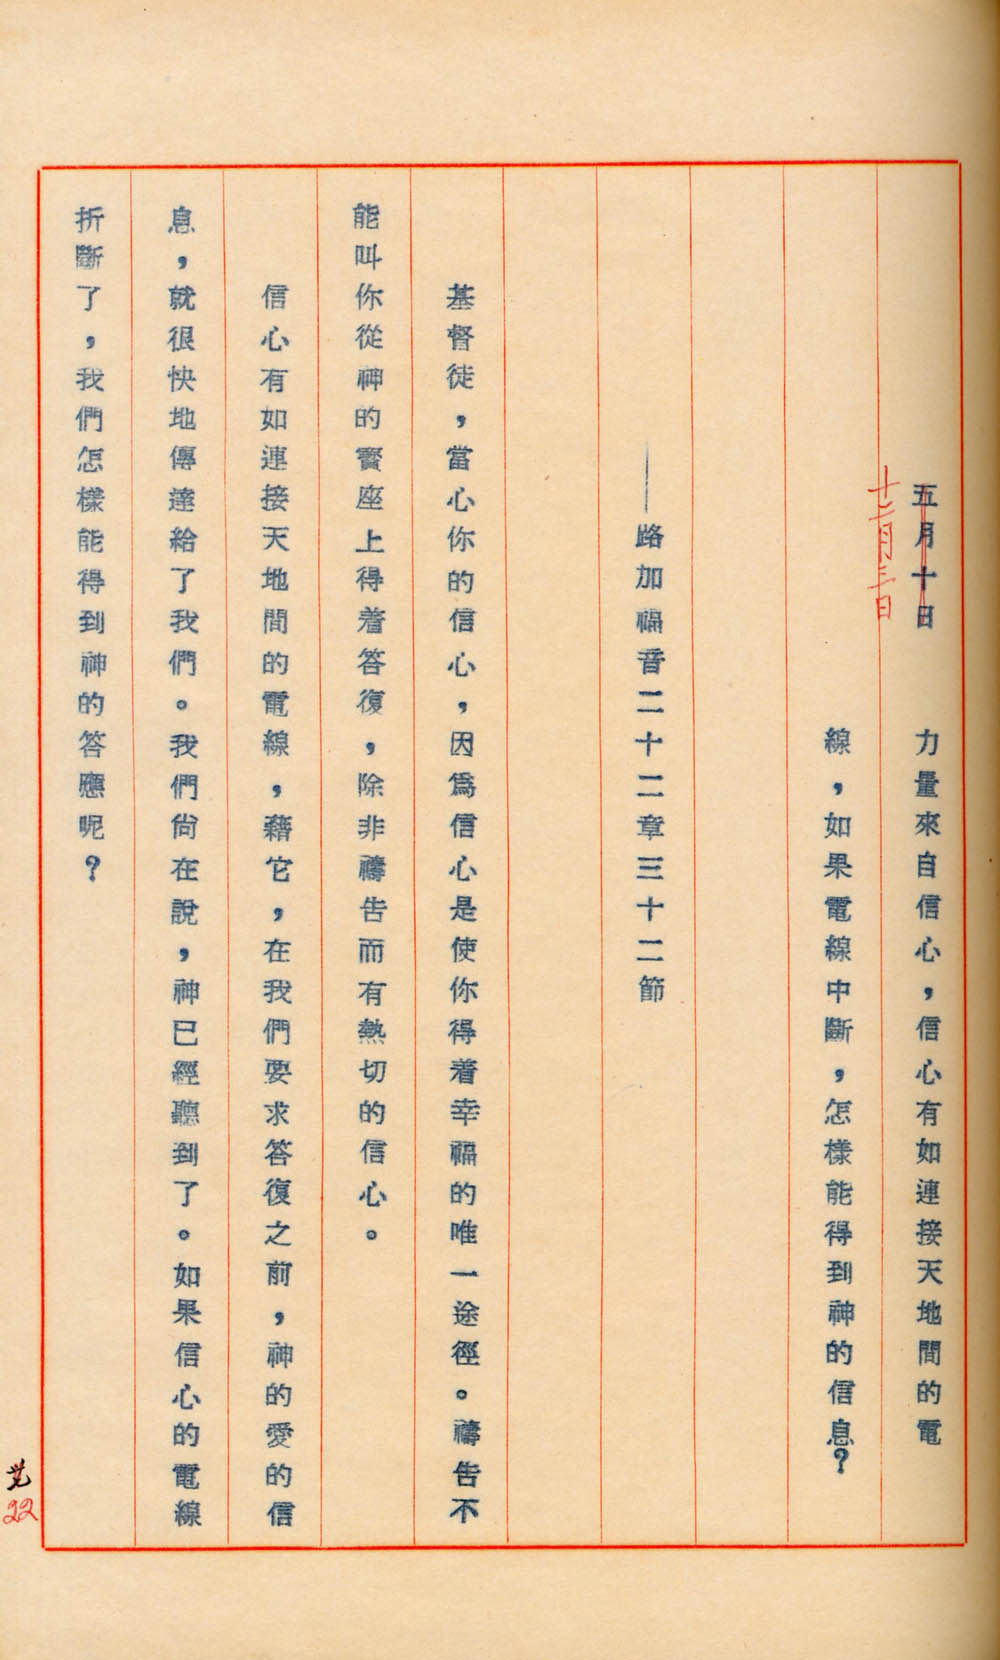 五月十日
力量來自信心，信心有如連接天地間的電
十二月三日
線，如果電線中斷，怎樣能得到神的信息？
——路加福音二十二章三十二節
基督徒，當心你的信心，因爲信心是使你得着幸福的唯一途徑。禱告不
能叫你從神的寳座上得着答復，除非禱告而有熱切的信心。
信心有如連接天地間的電線，藉它，在我們要求答復之前，神的愛的信
息，就很快地傳達給了我們。我們尙在說，神已經聽到了。如果信心的電線
折斷了，我們怎樣能得到神的答應呢？
22